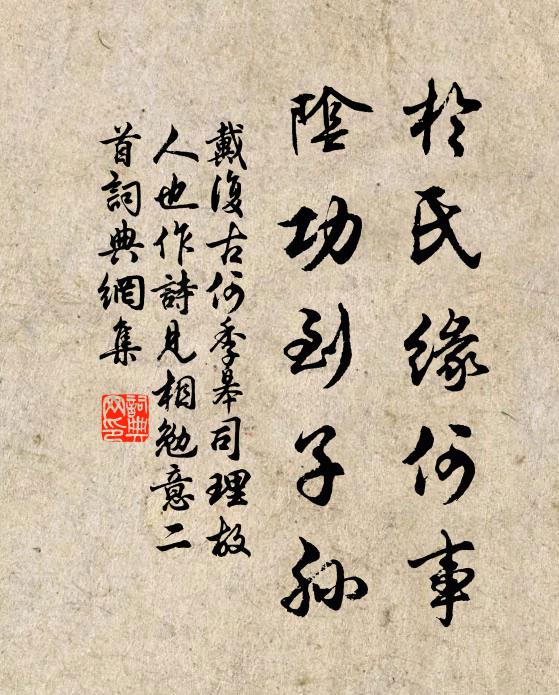 於民緣何事
陰功到子孫
戴復古何季皋司理故
人也作詩見相勉意二
首詞典網集
詞典
网印